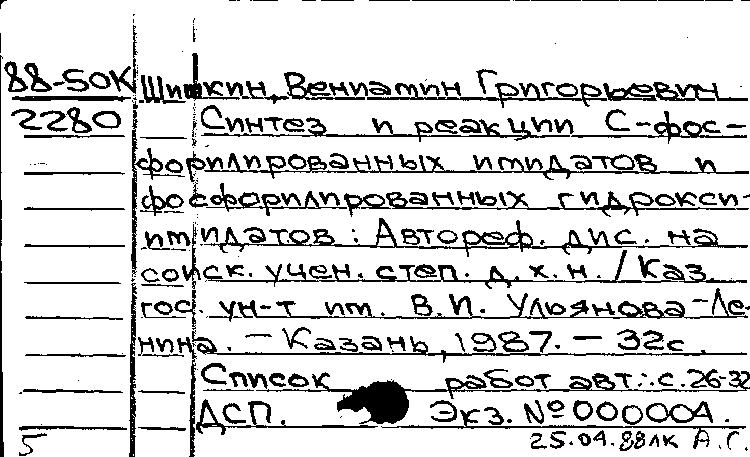 88-50К Шишкин, Вениамин Григорьевич
2280 Синтез и реакции С-фос-
форилированных имидатов и
фосфорилированных гидрокси-
имидатов : Автореф. дис. на
соиск. учен. степ. д. х. н. / Каз.
гос. ун-т им. В. И. Ульянова-Ле-
нина. - Казань, 1987. - 32с.
Список работ авт.: с. 26-32
ДСП. Экз. № 000004.
5 25.04.88лк А.Г.